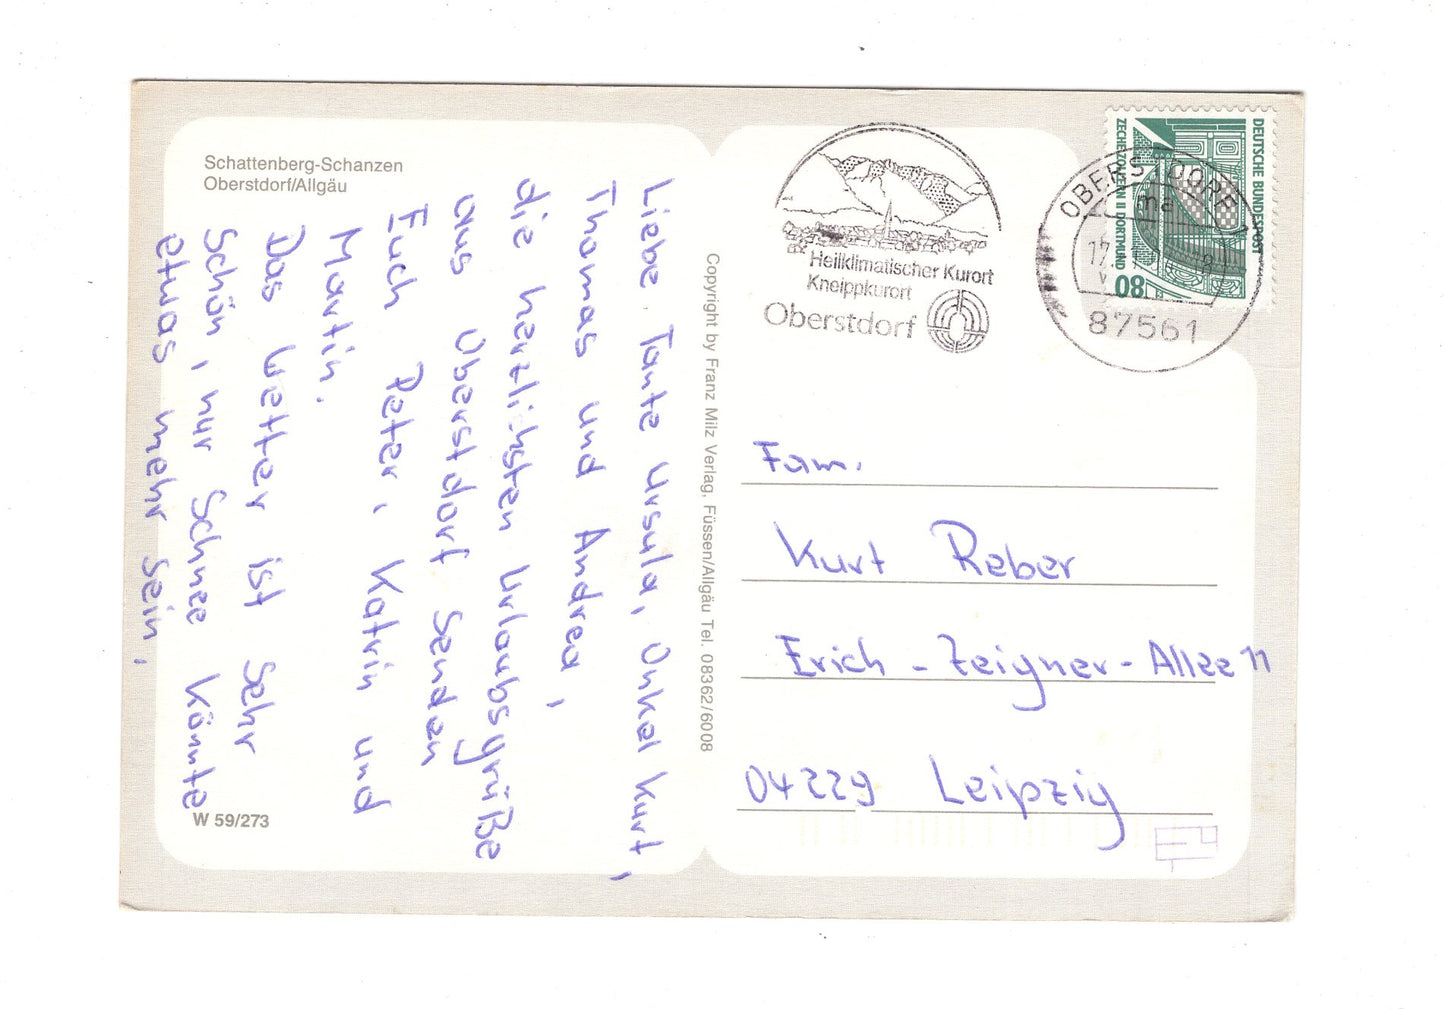 Schattenberg-Schanzen
Oberstdorf/Allgäu
Liebe Tante Ursula, Onkel Kurt,
Thomas und Andrea,
die herzlichsten Urlaubsgrüße
aus Oberstdorf senden
Euch Peter, Katrin und
Martin.
Das Wetter ist sehr
schön, nur Schnee könnte
etwas mehr sein.
W 59/273
Copyright by Franz Milz Verlag, Füssen/Allgäu Tel. 08362/6008
Heilklimatischer Kurort
Kneippkurort
Oberstdorf
OBERSTDORF
ma
87561
DEUTSCHE BUNDESPOST
ZECHE ZOLLERN II DORTMUND
80
Fam.
Kurt Reber
Erich-Zeigner-Allee 11
04229 Leipzig